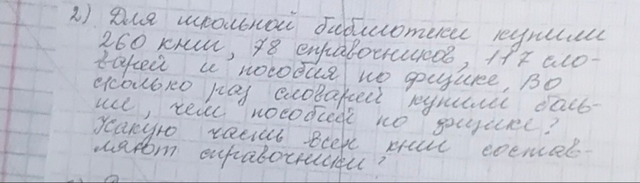 2) Для школьной библиотеки купили
260 книг, 78 справочников, 117 сло-
варей и пособия по физике. Во
сколько раз словарей купили боль-
ше, чем пособий по физике?
Какую часть всех книг состав-
ляют справочники?